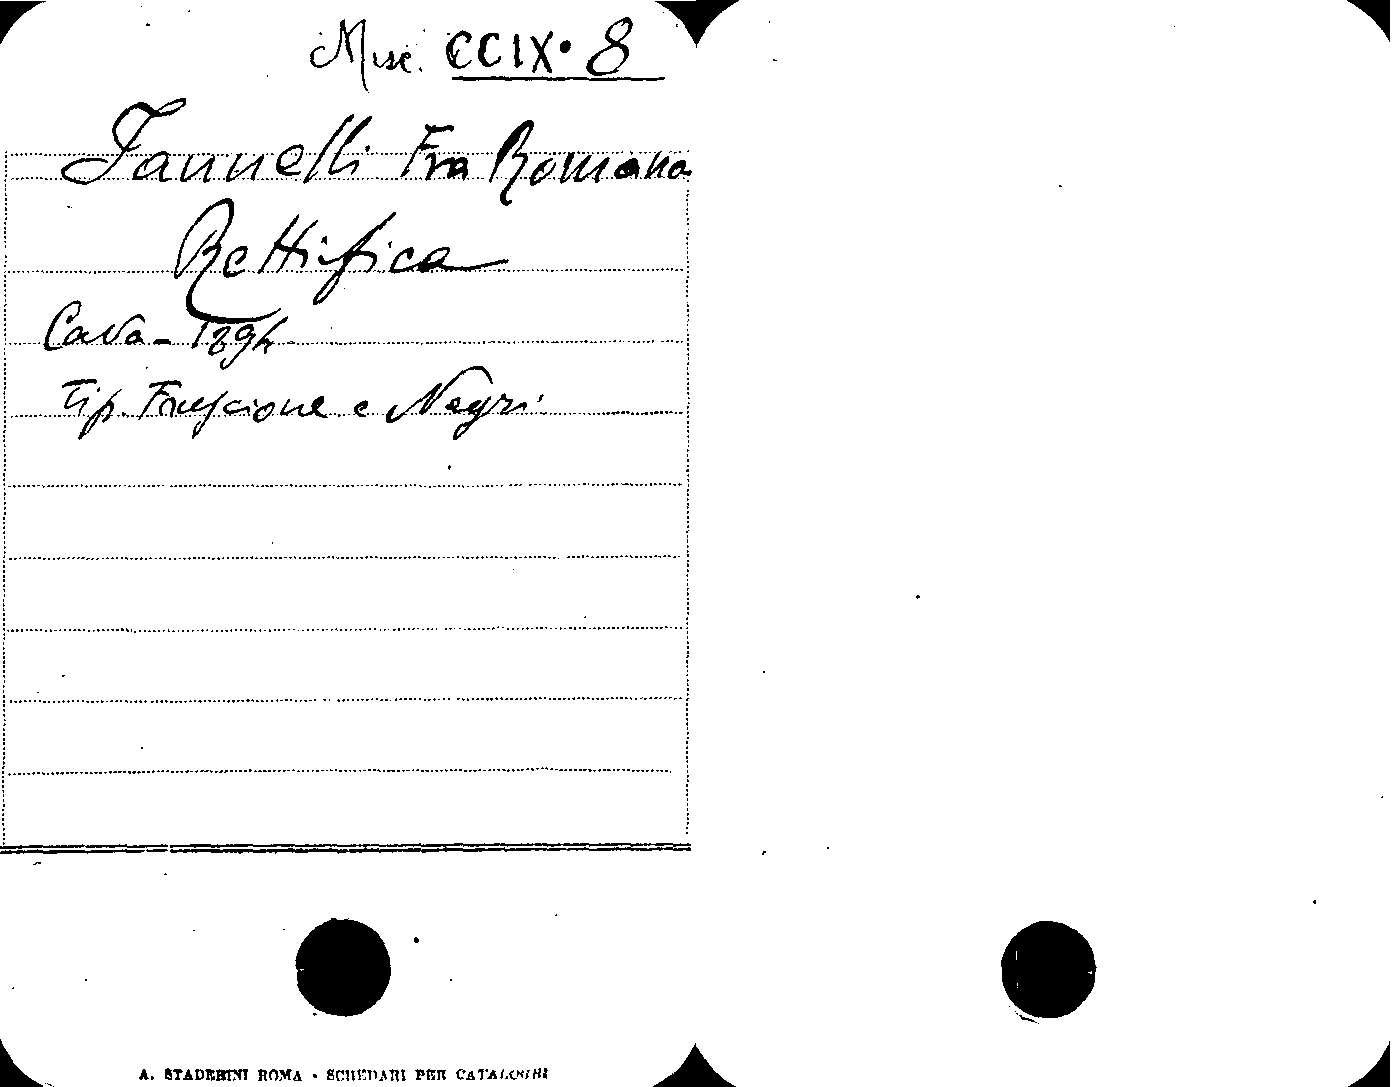 Misc. CCIX. 8
Iannelli Fra Romana
Rettifica
Cava - 1894
Tip. Fruscione e Negri
A. STADERINI ROMA - SCHEDARI PER CATALOGHI